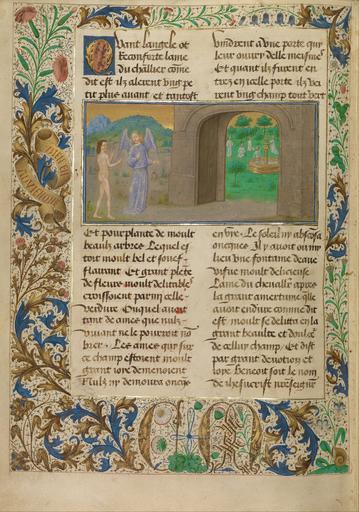 Quant langele ot
reconforte lame
du chlier cõme
dit est ilz alerent ung pe
tit plus auant et tantost
vindrent a vne porte qui
leur ouury delle meisme
Et quant ilz furent en
trez en celle porte ilz vei
rent ung champ tout vert
Et pour plante de moult
beaulx arbres Lequel es
toit moult bel et souef
flairant Et grant plete
de fleurs moult delitables
croissoient parmi celle
verdure Ouquel auoit
tant de ames que nulz
viuant ne le pourroit no
brer Les ames qui sur
ce champ estoient moult
grant ioie demenoient
Nulz ny demoura oncqs
en . Le soleil ny absconsa
oncques Il y auoit ou my
lieu vne fontaine deaue
viue moult delicieuse
Lame du cheualier apres
la grant amertume qlle
auoit endure comme dit
est moult se delitta en la
grant beaulte et doulceur
de cellui champ Et dist
par grant deuotion et
ioye Benoit soit le nom
de ihesucrist nrẽseignr